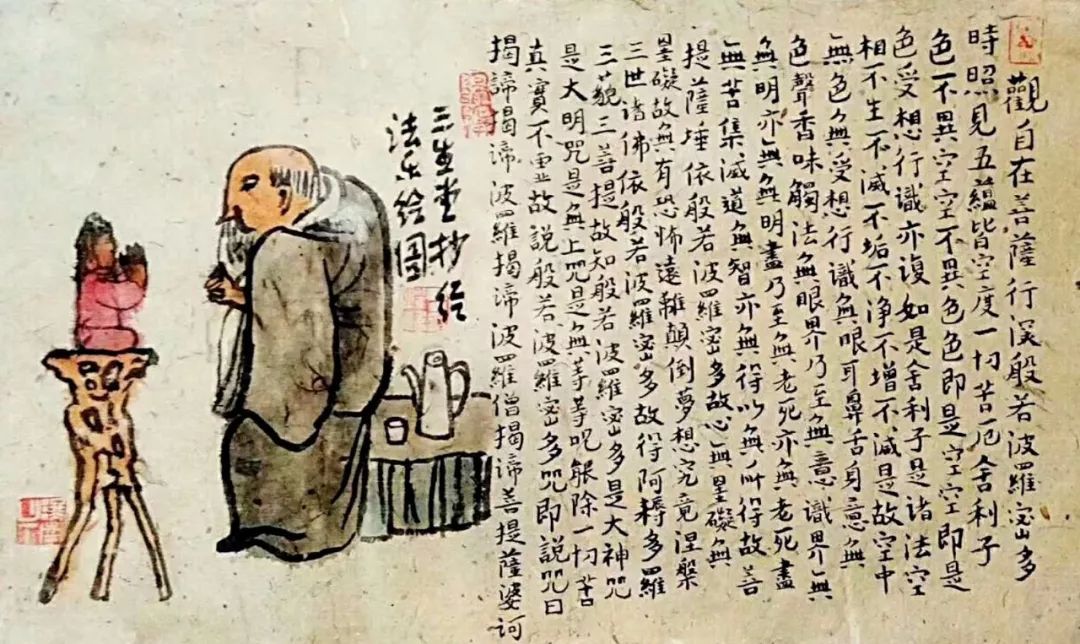 觀自在菩薩行深般若波羅密多
時照見五蘊皆空度一切苦厄舍利子
色不異空空不異色色即是空空即是
色受想行識亦復如是舍利子是諸法空
相不生不滅不垢不净不增不減是故空中
無色無受想行識無眼耳鼻舌身意無
色聲香味觸法無眼界乃至無意識界無
無明亦無無明盡乃至無老死亦無老死盡
無苦集滅道無智亦無得以無所得故菩
提薩埵依般若波羅密多故心無罣礙無
罣礙故無有恐怖遠離顛倒夢想究竟涅槃
三世諸佛依般若波羅密多故得阿耨多羅
三藐三菩提故知般若波羅密多是大神咒
是大明咒是無上咒是無等等咒能除一切苦
真實不虛故說般若波羅密多咒即說咒曰
揭諦揭諦波羅揭諦波羅僧揭諦菩提薩婆訶
三生堂抄经
法乐绘图